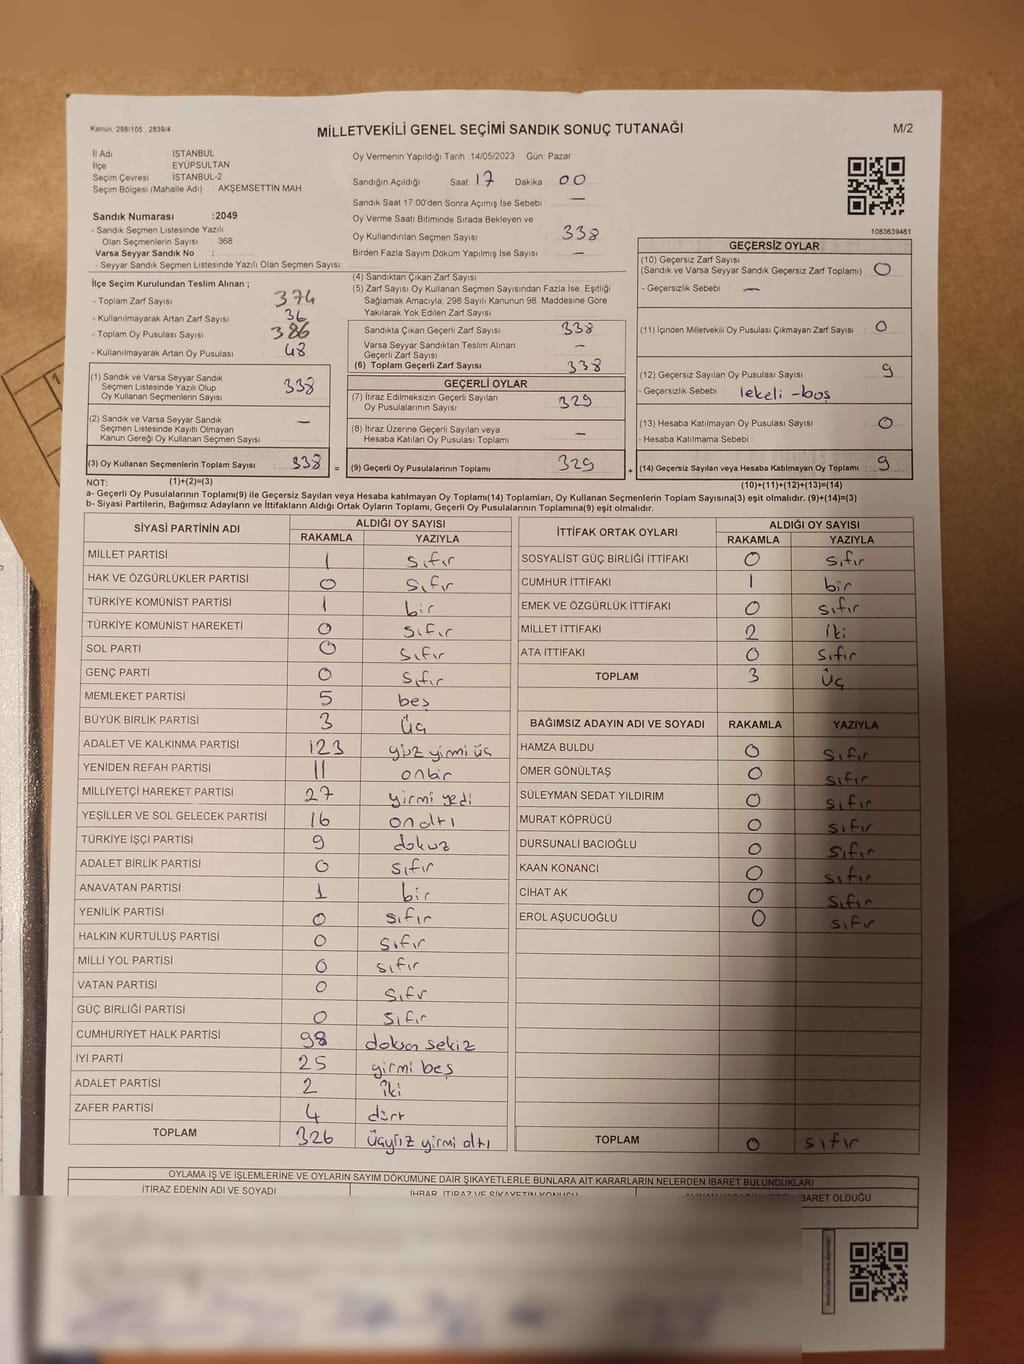 Kanun: 298/105 , 2839/4
MİLLETVEKİLİ GENEL SEÇİMİ SANDIK SONUÇ TUTANAĞI
M/2
İl Adı : İSTANBUL
İlçe : EYÜPSULTAN
Seçim Çevresi : İSTANBUL-2
Seçim Bölgesi (Mahalle Adı) : AKŞEMSETTİN MAH
Sandık Numarası :2049
- Sandık Seçmen Listesinde Yazılı
Olan Seçmenlerin Sayısı : 368
Varsa Seyyar Sandık No :
- Seyyar Sandık Seçmen Listesinde Yazılı Olan Seçmen Sayısı:
Oy Vermenin Yapıldığı Tarih :14/05/2023 Gün: Pazar
Sandığın Açıldığı Saat: 17 Dakika 00
Sandık Saat 17:00'den Sonra Açılmış İse Sebebi : —
Oy Verme Saati Bitiminde Sırada Bekleyen ve
Oy Kullandırılan Seçmen Sayısı : 338
Birden Fazla Sayım Döküm Yapılmış İse Sayısı : —
1083639461
İlçe Seçim Kurulundan Teslim Alınan ;
- Toplam Zarf Sayısı : 374
- Kullanılmayarak Artan Zarf Sayısı : 36
- Toplam Oy Pusulası Sayısı : 386
- Kullanılmayarak Artan Oy Pusulası : 48
(1) Sandık ve Varsa Seyyar Sandık
Seçmen Listesinde Yazılı Olup
Oy Kullanan Seçmenlerin Sayısı : 338
(2) Sandık ve Varsa Seyyar Sandık
Seçmen Listesinde Kayıtlı Olmayan
Kanun Gereği Oy Kullanan Seçmen Sayısı : —
(3) Oy Kullanan Seçmenlerin Toplam Sayısı : 338
(4) Sandıktan Çıkan Zarf Sayısı :
(5) Zarf Sayısı Oy Kullanan Seçmen Sayısından Fazla İse, Eşitliği
Sağlamak Amacıyla, 298 Sayılı Kanunun 98. Maddesine Göre
Yakılarak Yok Edilen Zarf Sayısı :
Sandıkta Çıkan Geçerli Zarf Sayısı : 338
Varsa Seyyar Sandıktan Teslim Alınan
Geçerli Zarf Sayısı : —
(6) Toplam Geçerli Zarf Sayısı : 338
GEÇERLİ OYLAR
(7) İtiraz Edilmeksizin Geçerli Sayılan
Oy Pusulalarının Sayısı : 329
(8) İtiraz Üzerine Geçerli Sayılan veya
Hesaba Katılan Oy Pusulası Toplamı : —
= (9) Geçerli Oy Pusulalarının Toplamı : 329 +
GEÇERSİZ OYLAR
(10) Geçersiz Zarf Sayısı
(Sandık ve Varsa Seyyar Sandık Geçersiz Zarf Toplamı) : 0
- Geçersizlik Sebebi : —
(11) İçinden Milletvekili Oy Pusulası Çıkmayan Zarf Sayısı : 0
(12) Geçersiz Sayılan Oy Pusulası Sayısı : 9
- Geçersizlik Sebebi : lekeli - boş
(13) Hesaba Katılmayan Oy Pusulası Sayısı : 0
- Hesaba Katılmama Sebebi :
(14) Geçersiz Sayılan veya Hesaba Katılmayan Oy Toplamı : 9
NOT: (1)+(2)=(3) (10)+(11)+(12)+(13)=(14)
a- Geçerli Oy Pusulalarının Toplamı(9) ile Geçersiz Sayılan veya Hesaba katılmayan Oy Toplamı(14) Toplamları, Oy Kullanan Seçmenlerin Toplam Sayısına(3) eşit olmalıdır. (9)+(14)=(3)
b- Siyasi Partilerin, Bağımsız Adayların ve İttifakların Aldığı Ortak Oyların Toplamı, Geçerli Oy Pusulalarının Toplamına(9) eşit olmalıdır.
SİYASİ PARTİNİN ADI ALDIĞI OY SAYISI
RAKAMLA YAZIYLA
MİLLET PARTİSİ 1 sıfır
HAK VE ÖZGÜRLÜKLER PARTİSİ 0 sıfır
TÜRKİYE KOMÜNİST PARTİSİ 1 bir
TÜRKİYE KOMÜNİST HAREKETİ 0 sıfır
SOL PARTİ 0 sıfır
GENÇ PARTİ 0 sıfır
MEMLEKET PARTİSİ 5 beş
BÜYÜK BİRLİK PARTİSİ 3 üç
ADALET VE KALKINMA PARTİSİ 123 yüz yirmi üç
YENİDEN REFAH PARTİSİ 11 onbir
MİLLİYETÇİ HAREKET PARTİSİ 27 yirmi yedi
YEŞİLLER VE SOL GELECEK PARTİSİ 16 onaltı
TÜRKİYE İŞÇİ PARTİSİ 9 dokuz
ADALET BİRLİK PARTİSİ 0 sıfır
ANAVATAN PARTİSİ 1 bir
YENİLİK PARTİSİ 0 sıfır
HALKIN KURTULUŞ PARTİSİ 0 sıfır
MİLLİ YOL PARTİSİ 0 sıfır
VATAN PARTİSİ 0 sıfır
GÜÇ BİRLİĞİ PARTİSİ 0 sıfır
CUMHURİYET HALK PARTİSİ 98 doksan sekiz
İYİ PARTİ 25 yirmi beş
ADALET PARTİSİ 2 iki
ZAFER PARTİSİ 4 dört
TOPLAM 326 üçyüz yirmi altı
İTTİFAK ORTAK OYLARI ALDIĞI OY SAYISI
RAKAMLA YAZIYLA
SOSYALİST GÜÇ BİRLİĞİ İTTİFAKI 0 sıfır
CUMHUR İTTİFAKI 1 bir
EMEK VE ÖZGÜRLÜK İTTİFAKI 0 sıfır
MİLLET İTTİFAKI 2 iki
ATA İTTİFAKI 0 sıfır
TOPLAM 3 üç
BAĞIMSIZ ADAYIN ADI VE SOYADI RAKAMLA YAZIYLA
HAMZA BULDU 0 sıfır
ÖMER GÖNÜLTAŞ 0 sıfır
SÜLEYMAN SEDAT YILDIRIM 0 sıfır
MURAT KÖPRÜCÜ 0 sıfır
DURSUNALİ BACIOĞLU 0 sıfır
KAAN KONANCI 0 sıfır
CİHAT AK 0 sıfır
EROL AŞUCUOĞLU 0 sıfır
TOPLAM 0 sıfır
OYLAMA İŞ VE İŞLEMLERİNE VE OYLARIN SAYIM DÖKÜMÜNE DAİR ŞİKAYETLERLE BUNLARA AİT KARARLARIN NELERDEN İBARET BULUNDUKLARI
İTİRAZ EDENİN ADI VE SOYADI İHBAR, İTİRAZ VE ŞİKAYETİN KONUSU İBARET OLDUĞU